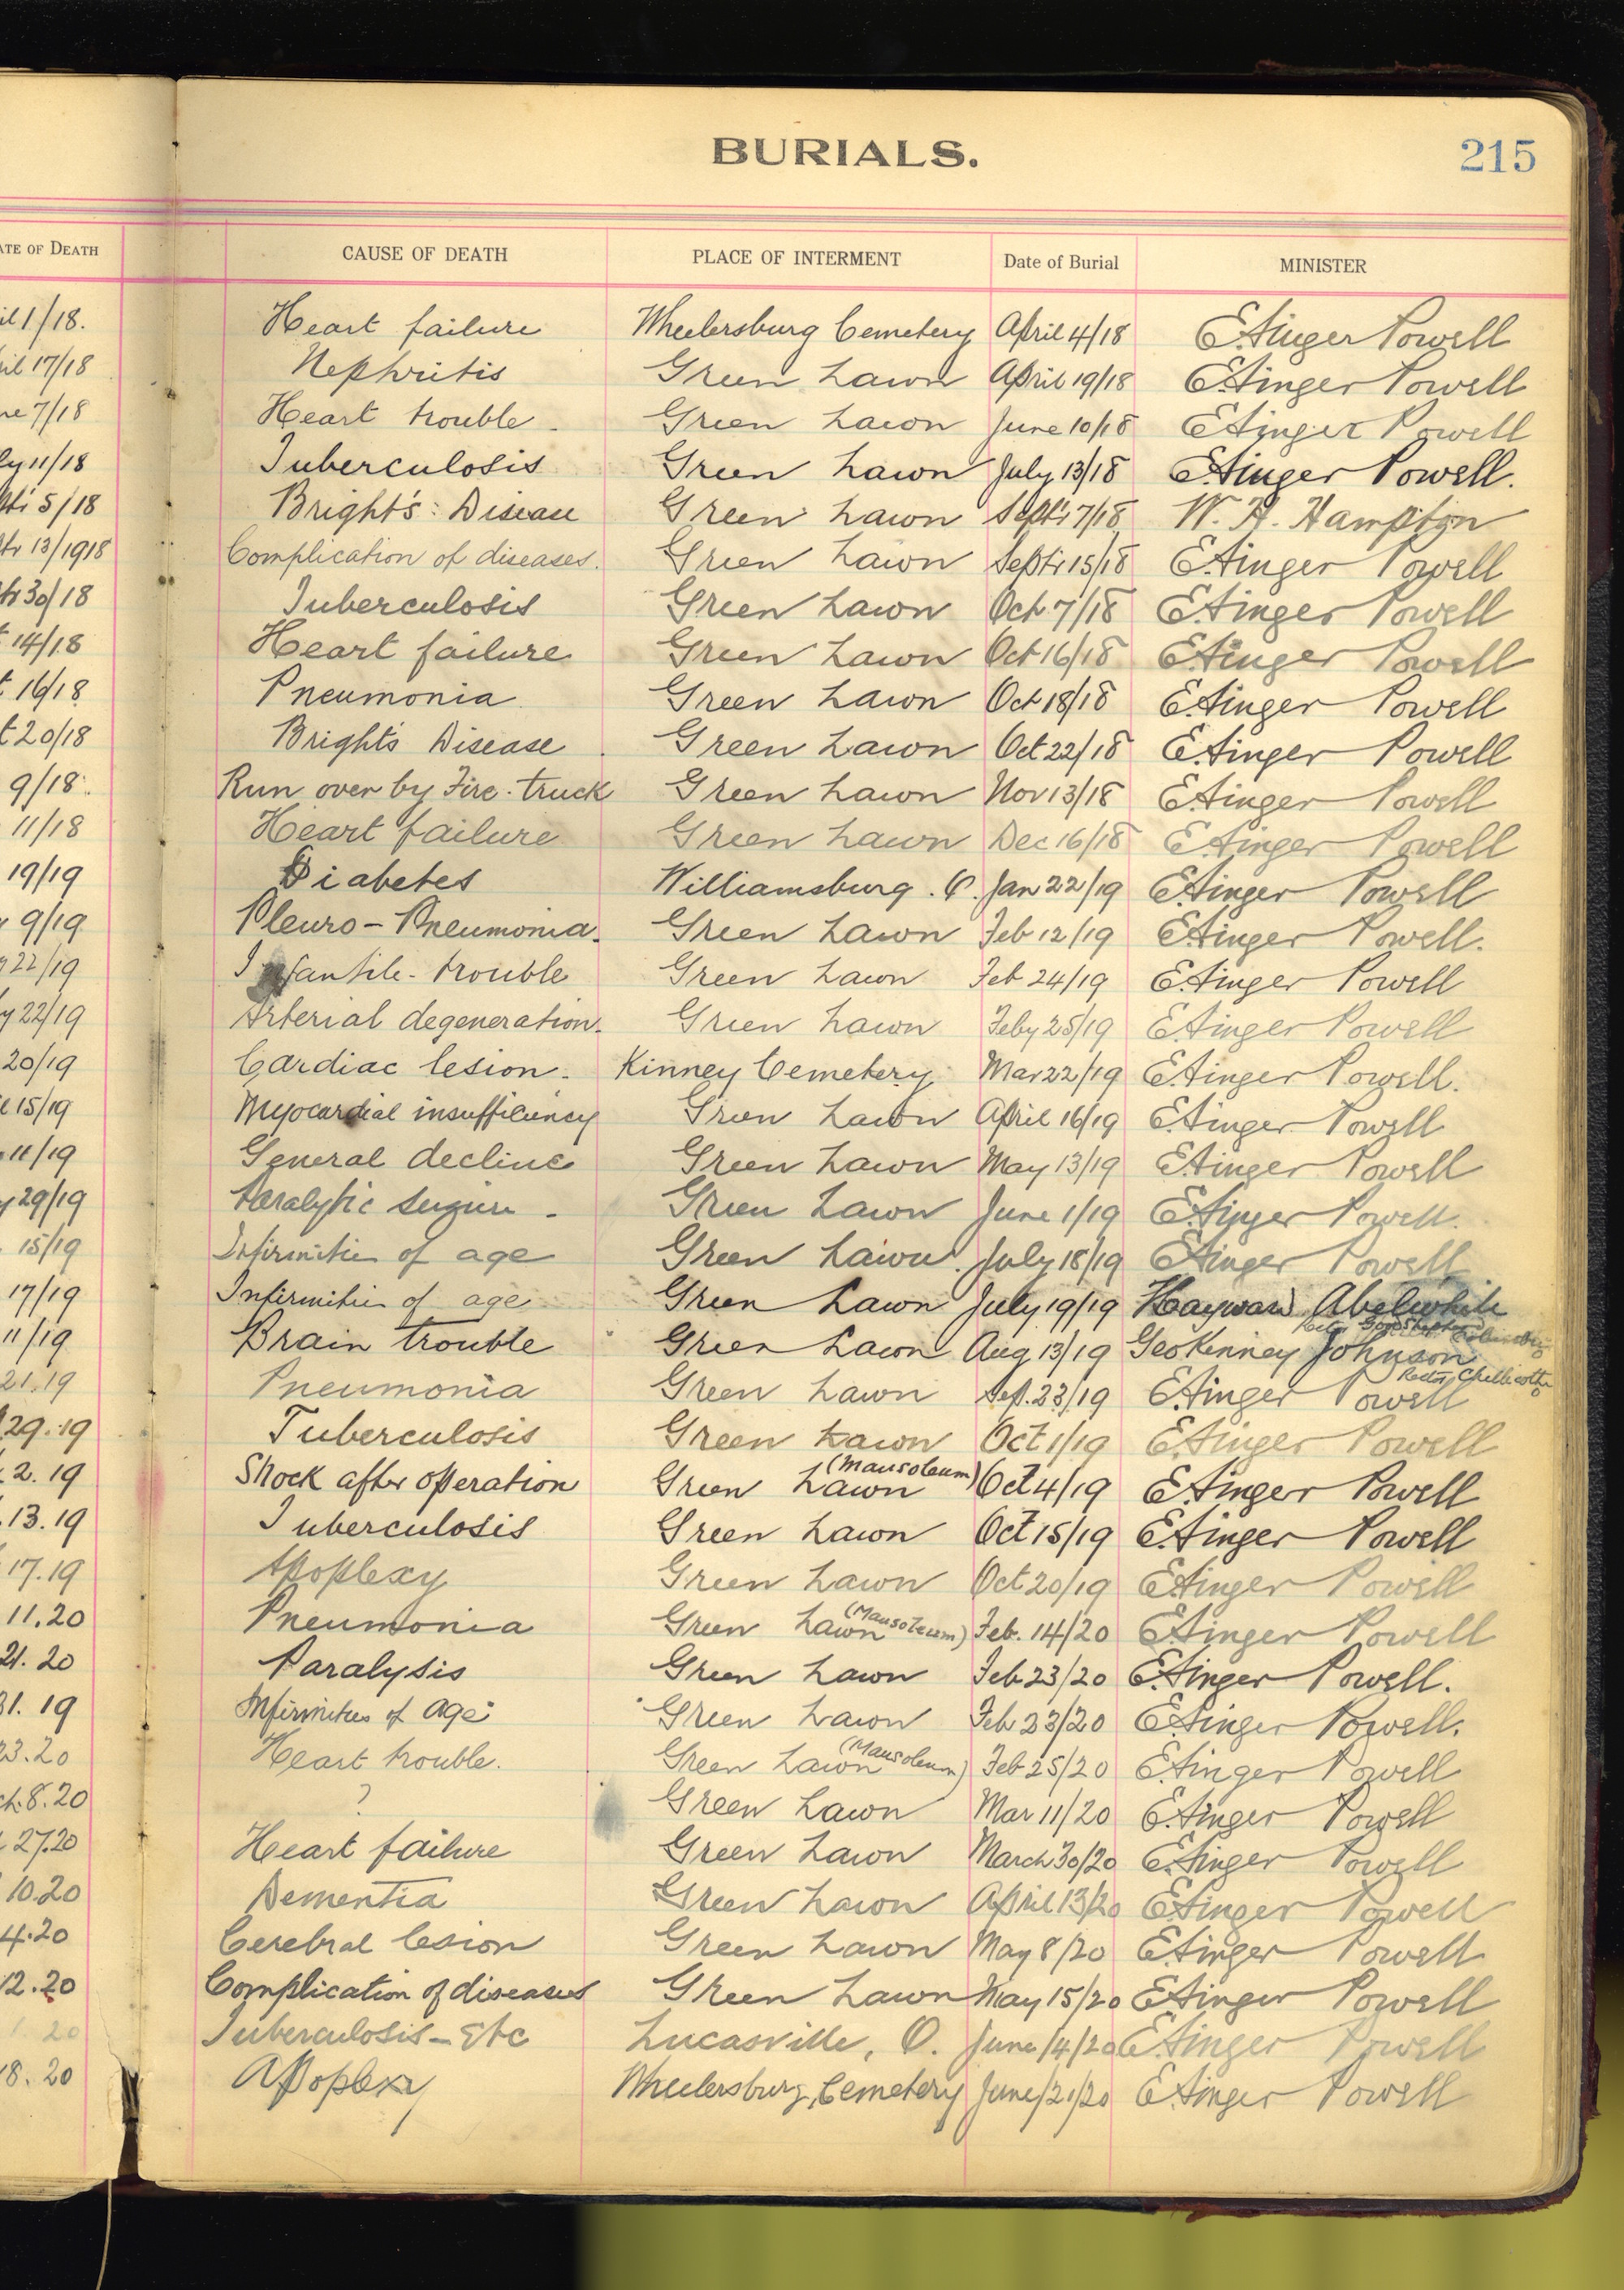 BURIALS.
215
ATE OF DEATH CAUSE OF DEATH PLACE OF INTERMENT Date of Burial MINISTER
il 1/18. Heart failure Wheelersburg Cemetery April 4/18 E Ainger Powell
il 17/18 Nephritis Green Lawn April 19/18 E Ainger Powell
ne 7/18 Heart trouble - Green Lawn June 10/18 E Ainger Powell
ly 11/18 Tuberculosis Green Lawn July 13/18 E Ainger Powell.
5/18 Bright's Disease Green Lawn Septr 7/18 W. H. Hampton
13/1918 Complication of diseases. Green Lawn Septr 15/18 E Ainger Powell
30/18 Tuberculosis Green Lawn Oct 7/18 E Ainger Powell
14/18 Heart failure Green Lawn Oct 16/18 E Ainger Powell
t 16/18 Pneumonia Green Lawn Oct 18/18 E Ainger Powell
t 20/18 Bright's Disease Green Lawn Oct 22/18 E Ainger Powell
9/18 Run over by Fire-truck Green Lawn Nov 13/18 E Ainger Powell
11/18 Heart failure Green Lawn Dec 16/18 E Ainger Powell
19/19 Diabetes Williamsburg. O. Jan 22/19 E Ainger Powell
9/19 Pleuro-Pneumonia. Green Lawn Feb 12/19 E Ainger Powell.
22/19 Infantile-trouble Green Lawn Feb 24/19 E Ainger Powell
y 22/19 Arterial degeneration. Green Lawn Feby 25/19 E Ainger Powell
20/19 Cardiac lesion. Kinney Cemetery Mar 22/19 E Ainger Powell.
15/19 Myocardial insufficiency Green Lawn April 16/19 E Ainger Powell
11/19 General decline Green Lawn May 13/19 E Ainger Powell
y 29/19 Paralytic seizure - Green Lawn June 1/19 E Ainger Powell.
15/19 Infirmities of age Green Lawn. July 18/19 E Ainger Powell
17/19 Infirmities of age Green Lawn July 19/19 Hayward Ablewhite
11/19 Brain trouble Green Lawn Aug 13/19 Geo Kinney Johnson
Rector Chillicothe
21.19 Pneumonia Green Lawn Sep. 23/19 E Ainger Powell
29.19 Tuberculosis Green Lawn Oct 1/19 E Ainger Powell
2.19 Shock after operation Green Lawn (Mausoleum) Oct 4/19 E Ainger Powell
13.19 Tuberculosis Green Lawn Oct 15/19 E Ainger Powell
17.19 Apoplexy Green Lawn Oct 20/19 E Ainger Powell
11.20 Pneumonia Green Lawn (Mausoleum) Feb. 14/20 E Ainger Powell
21.20 Paralysis Green Lawn Feb 23/20 E Ainger Powell.
31.19 Infirmities of age Green Lawn Feb 23/20 E Ainger Powell.
23.20 Heart trouble. Green Lawn (Mausoleum) Feb 25/20 E Ainger Powell
ch 8.20 ? Green Lawn Mar 11/20 E Ainger Powell
27.20 Heart failure Green Lawn March 30/20 E Ainger Powell
10.20 Dementia Green Lawn April 13/20 E Ainger Powell
4.20 Cerebral lesion Green Lawn May 8/20 E Ainger Powell
12.20 Complication of diseases Green Lawn May 15/20 E Ainger Powell
1.20 Tuberculosis-Etc Lucasville, O. June/4/20 E Ainger Powell
18.20 Apoplexy Wheelersburg, Cemetery June/21/20 E Ainger Powell